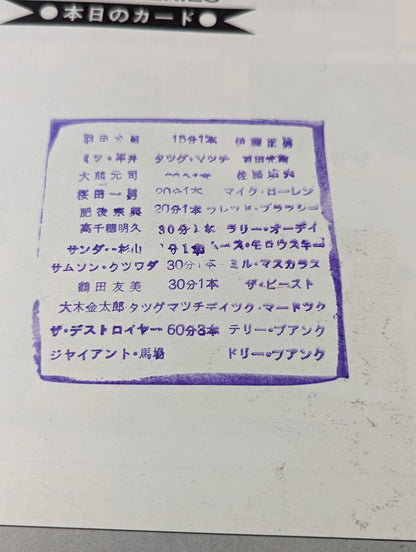 ●本日のカード●
15分1本 伊藤正男
ミツ・平井 タツグ・マツチ 百田光雄
大熊元司 佐藤昭夫
桜田一男 20分1本 マイク・ローレン
肥後宗典 20分1本 フレツド・ブラツシー
高千穂明久 30分1本 ラリー・オーデイ
サンダー杉山 分1本
サムソン・クツワダ 30分1本 ミル・マスカラス
鶴田友美 30分1本 ザ・ビースト
大木金太郎 タツグマツチ デイツク・マードツク
ザ・デストロイヤー 60分3本 テリー・フアンク
ジヤイアント・馬場 ドリー・フアンク